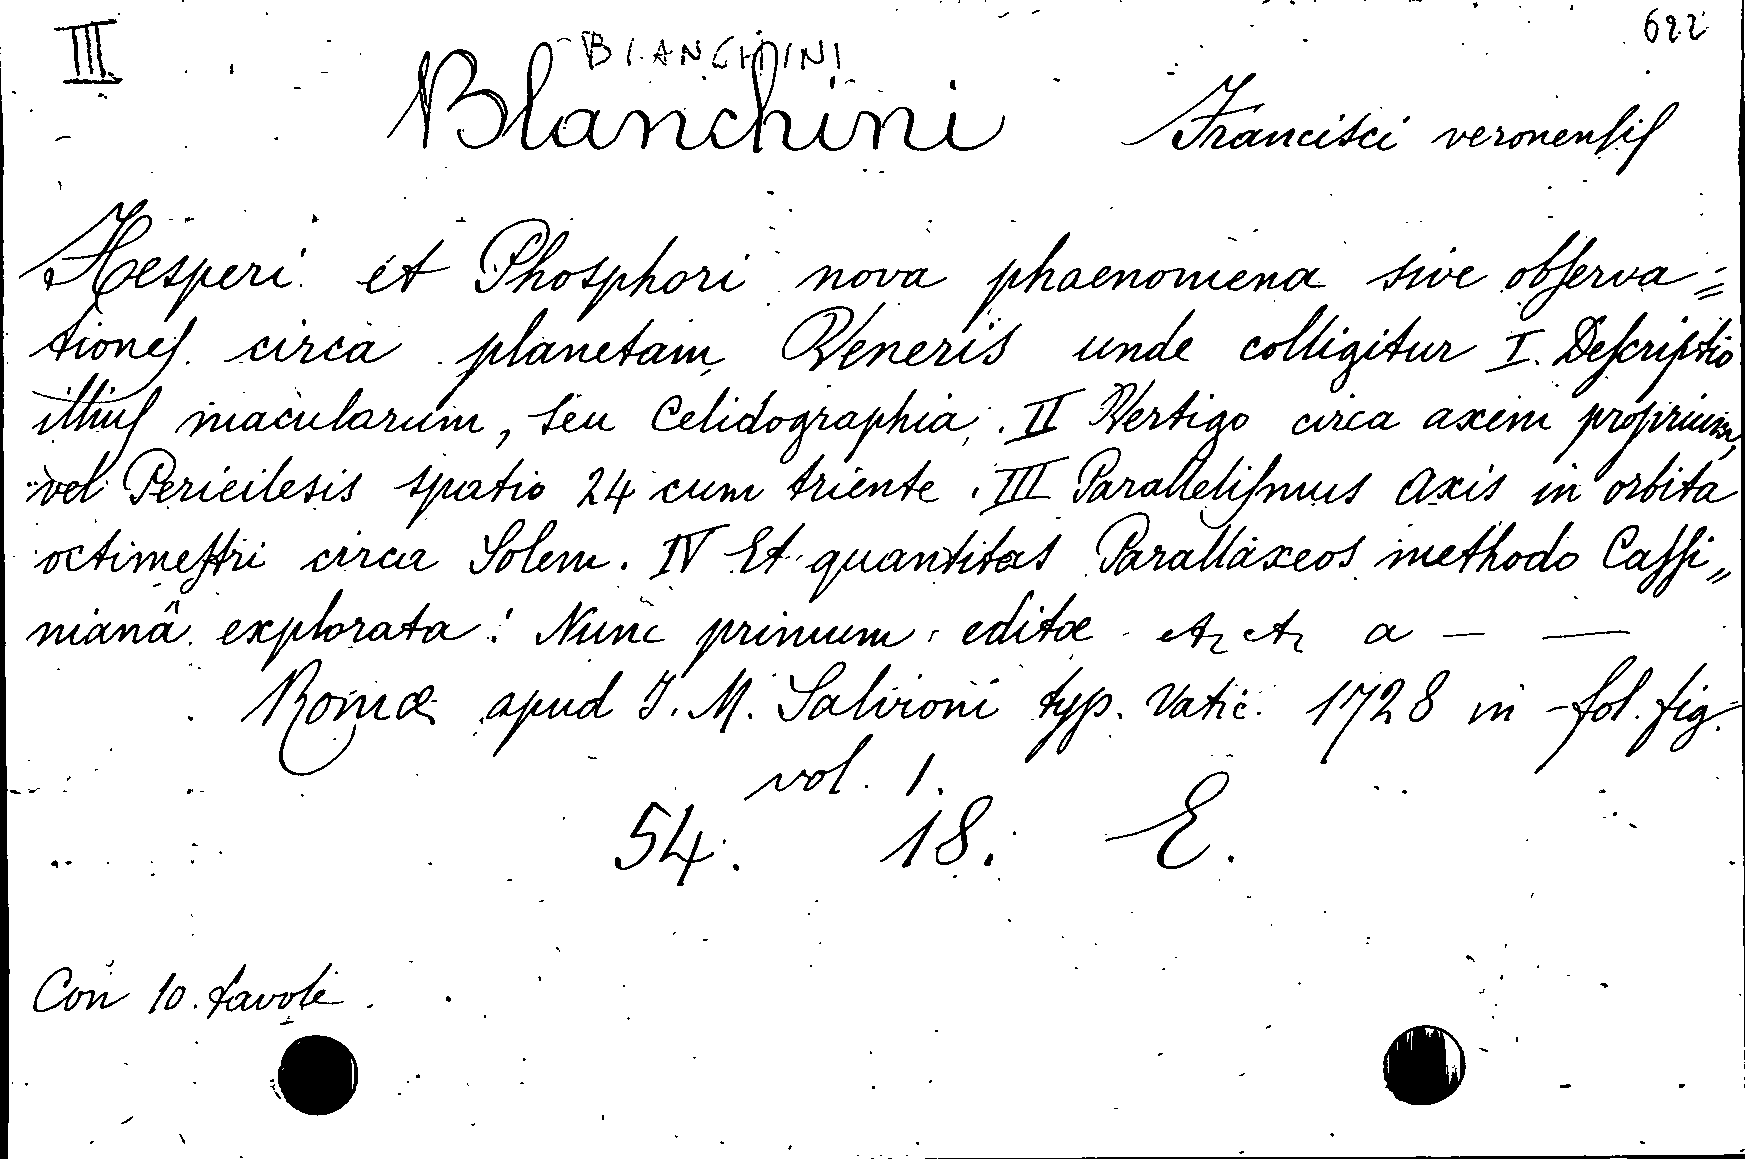 III
622
BIANCHINI
Blanchini Francisci veronensis
Hesperi et Phosphori nova phaenomena sive observa=
tiones circa planetam Veneris unde colligitur I. Descriptio
illius macularum, seu Celidographia. II Vertigo circa axem proprium,
vel Perieilesis spatio 24 cum triente. III Parallelismus axis in orbita
octimestri circa Solem. IV Et quantitas Parallaxeos methodo Cassi„
nianâ explorata: Nunc primum editæ etz etz a — —
Romæ apud J. M. Salvioni typ. Vatic. 1728 in fol. fig.
vol. 1.
54. 18. E.
Con 10. tavole